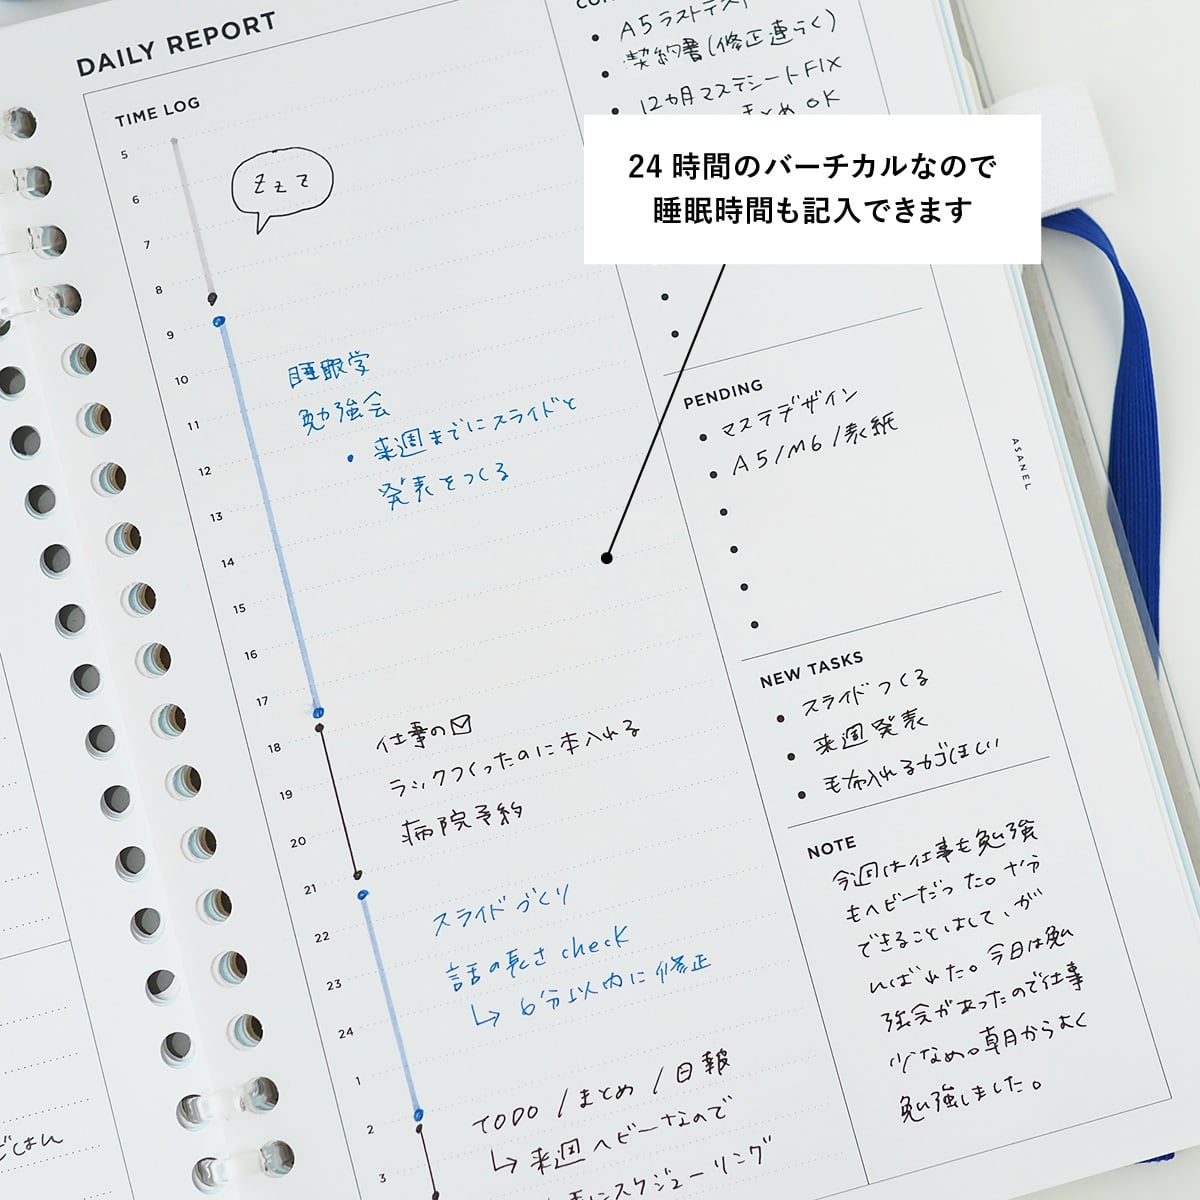 DAILY REPORT
TIME LOG
5
6
7
8
9
10
11
12
13
14
15
16
17
18
19
20
21
22
23
24
1
2
3
Zzz
睡眠学
勉強会
• 来週までにスライドと
発表をつくる
仕事の✉
ラックつくったのに本入れる
病院予約
スライドづくり
話の長さcheck
↳ 6分以内に修正
TODO / まとめ / 日報
↳ 来週ヘビーなので
にスケジューリング
• A5ラストテスト
• 契約書(修正連らく)
• 12カ月マステシートFIX
まとめOK
24時間のバーチカルなので
睡眠時間も記入できます
PENDING
• マステデザイン
• A5/M6/表紙
NEW TASKS
• スライドつくる
• 来週発表
• 毛布入れるカゴほしい
NOTE
今週は仕事も勉強
もヘビーだった。十分
できることはして、が
んばれた。今日は勉
強会があったので仕事
少なめ。朝からよく
勉強しました。
ASANEL
ごはん